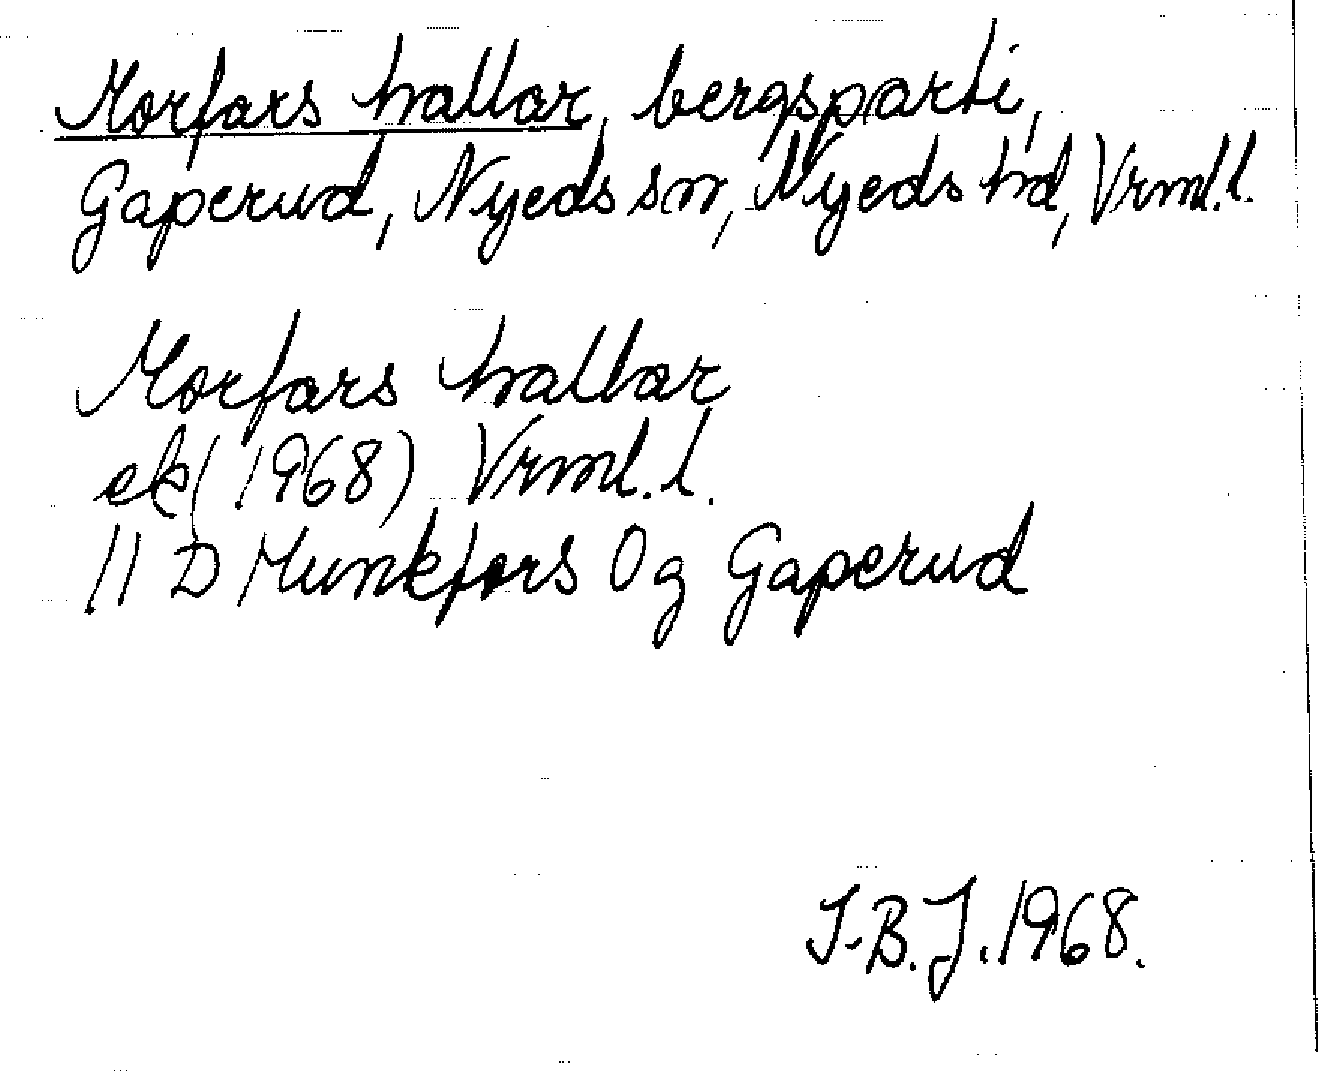 Morfars hallar, bergsparti,
Gaperud, Nyeds sn, Nyeds hd, Vrml.l.
Morfars hallar
ek (1968) Vrml.l.
11 D Munkfors 0 g Gaperud
I-B.J. 1968.